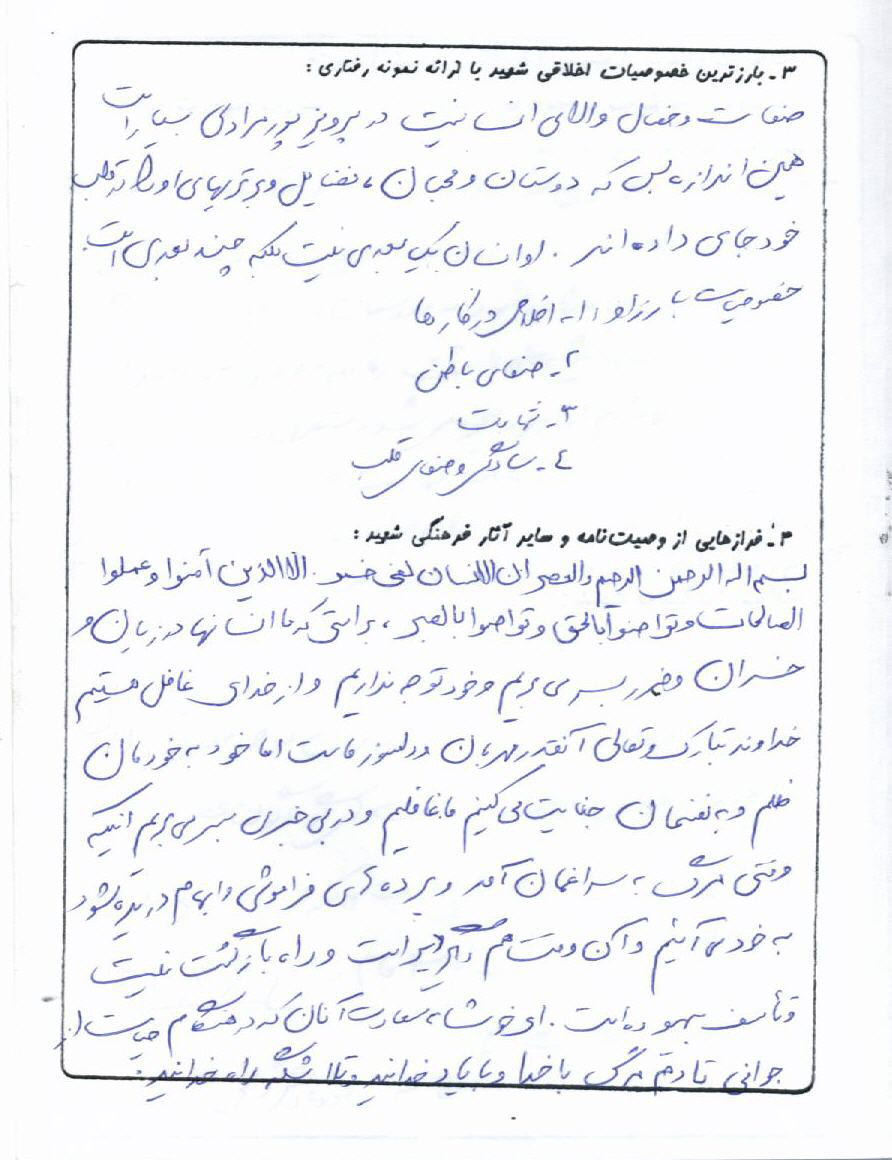 ۳ـ بارزترین خصوصیات اخلاقی شهید با ارائه نمونه رفتاری :
صفات و خصال والای انسانیت در پرویز پورمرادی بسیار است
همین اندازه بس که دوستان و محبان ، فضایل و برتریهای او را در قلب
خود جای داده اند . او انسان یک بعدی نیست بلکه چند بعدی است.
خصوصیات بارز او : ۱ـ اخلاص در کارها
۲ـ صفای باطن
۳ـ شهامت
۴ـ سادگی و صفای قلب
۴ـ فرازهایی از وصیت‌نامه و سایر آثار فرهنگی شهید :
بسم اله الرحمن الرحیم والعصر ان الانسان لفی خسر . الا الذین آمنوا و عملوا
الصالحات و تواصوا بالحق و تواصوا بالصبر ، براستی که ما انسانها در زیان و
خسران و ضرر بسر می بریم و خود توجه نداریم و از خدای غافل هستیم
خداوند تبارک و تعالی آنقدر مهربان و دلسوز ماست اما خود به خودمان
ظلم و به نفسمان جنایت می کنیم ما غافلیم و در بی خبری بسر می بریم اینکه
وقتی مرگ به سراغمان آمد و پرده های فراموشی و ابهام دریده شود
به خود می آئیم و آن وقت هم دیگر دیر است و راه بازگشت نیست
و تأسف بیهوده است . ای خوشا به سعادت آنان که در هنگام حیات از
جوانی تا دم مرگ با خدا و با یاد خدایند و تلاشگر راه خدایند .